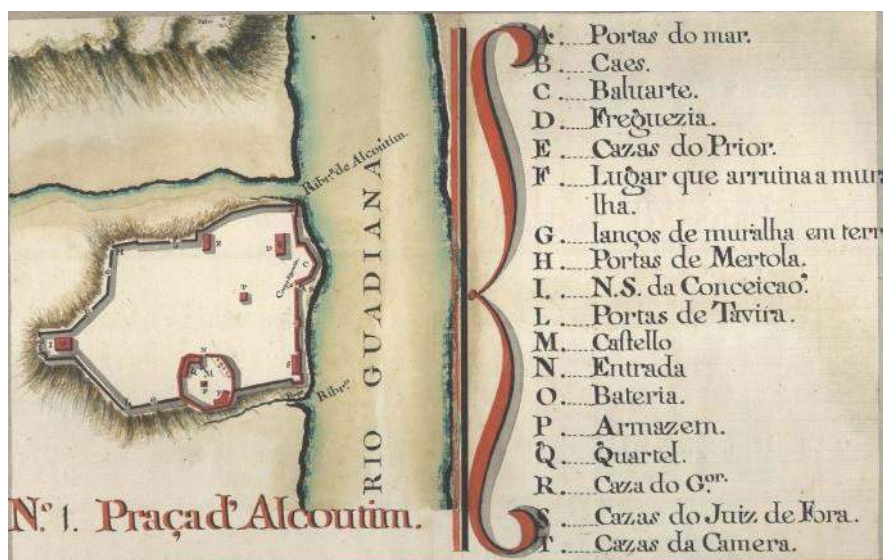 Ribrª. de Alcoutim.
RIO GUADIANA
Ribrº.
N.º 1. Praça d' Alcoutim.
A. Portas do mar.
B. Caes.
C. Baluarte.
D. Freguezia.
E. Cazas do Prior.
F. Lugar que arruina a mura
lha.
G. lanços de muralha em terr
H. Portas de Mertola.
I. N.S. da Conceicaõ.
L. Portas de Tavira.
M. Castello
N. Entrada
O. Bateria.
P. Armazem.
Q. Quartel.
R. Caza do Gᵒʳ.
S. Cazas do Juiz de Fora.
T. Cazas da Camera.